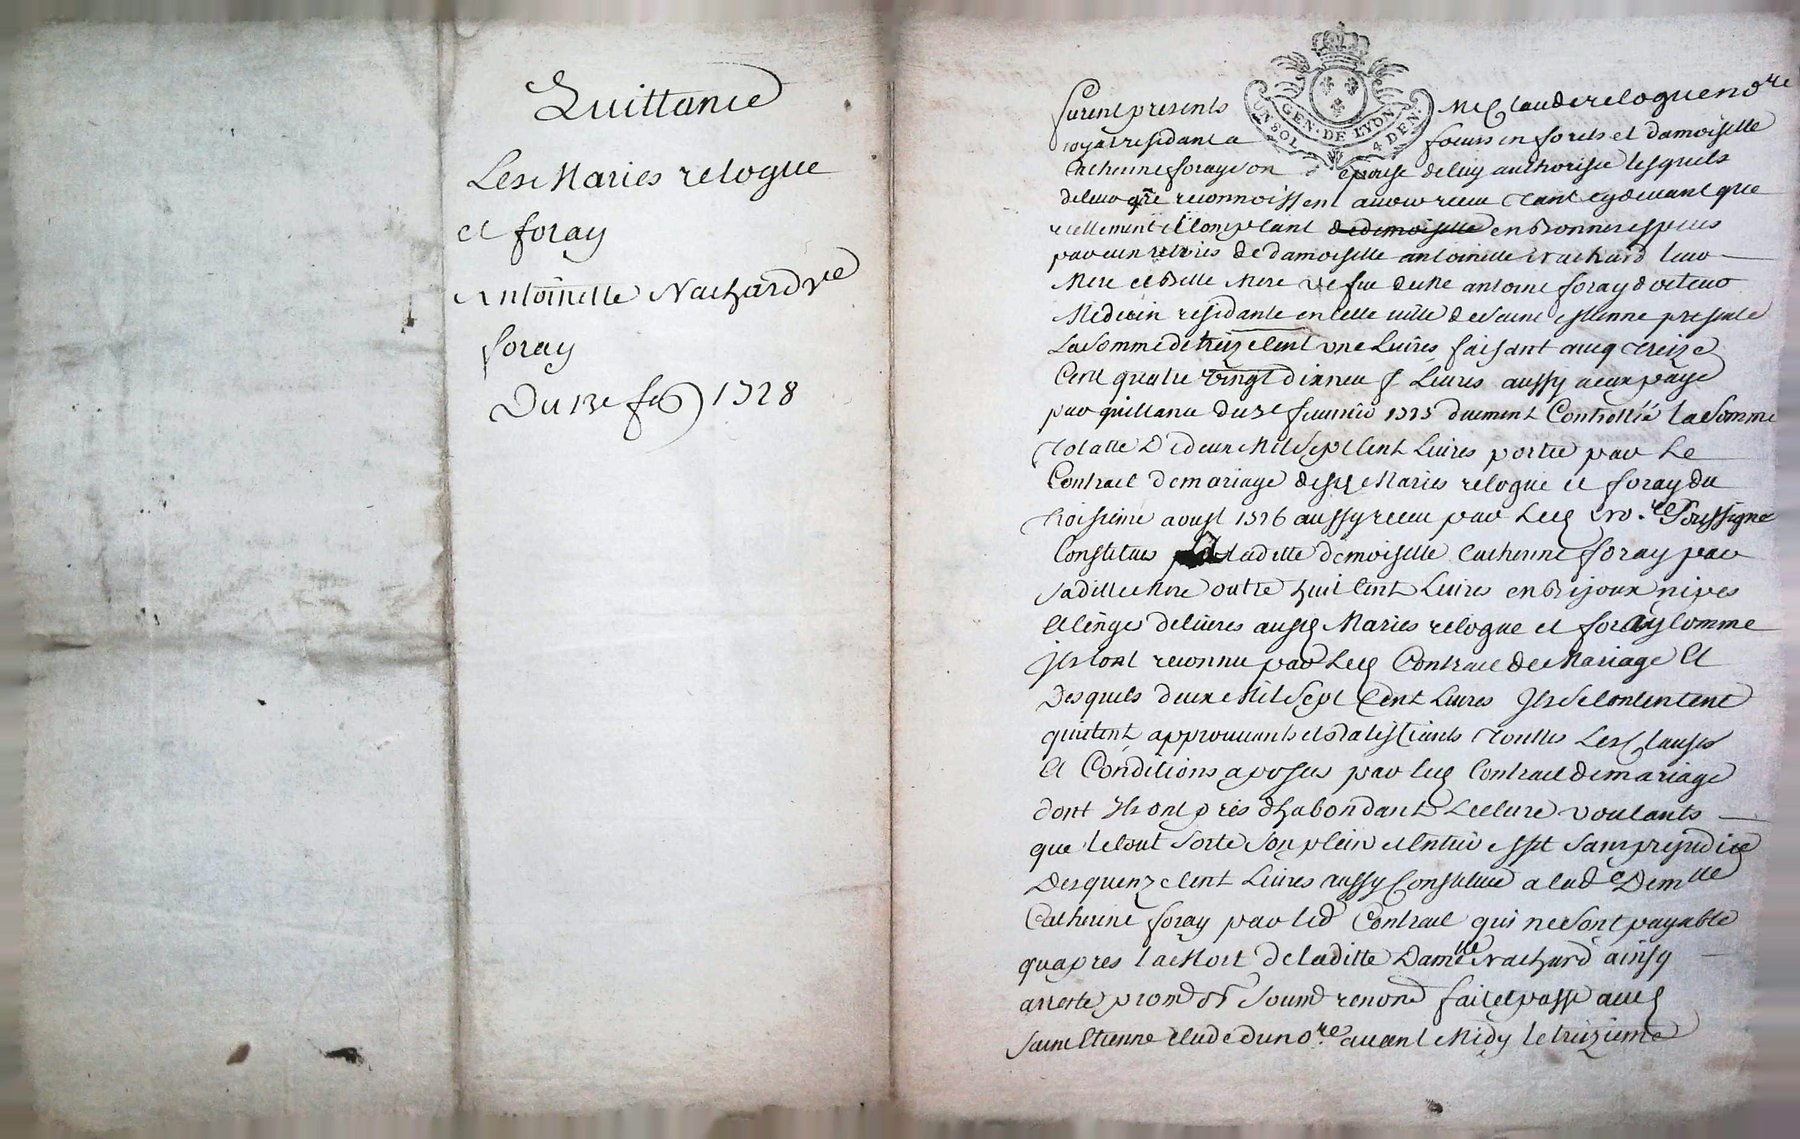 Quittance
Les Maries relogue
et foray
Antoinette Nachard vve
foray
Du 13e feb 1728
GEN. DE LYON
UN SOL 4 DEN.
furent presents Me Claude relogue nore
royal residant a foeurs en forets et damoiselle
Catherine foray son epouse de luy authorisée lesquels
de leur gré reconnoissent avoir receu tant cydevant que
reellement et Comptant en bonnes especes
par eux retirés de damoiselle antoinette Nachard leur
Mere et belle Mere vefue de Me antoine foray docteur
Medecin residante en cette ville de saint estienne presente
La somme de treize cent une Livres faisant aveq treize
Cent quatre vingt dix neuf Livres aussy a eux payé
par quittance du 3e feuvrier 1727 duement Controllée la somme
totalle De deux Mil Sept Cent Livres portée par Le
Contract de mariage desd Maries relogue et foray du
troisieme aoust 1726 aussy receu par Led nore Soussigné
Constitues a laditte demoiselle Catherine foray par
sa ditte Mere outre huit Cent Livres en bijoux nipes
et linges delivrés ausd Maries relogue et foray Comme
Ils ont reconnu par Led Contract de Mariage Et
Desquels deux Mil Sept Cent Livres Ils se Contentent
quittent approuvants et ratiffiants touttes Les Clauses
Et Conditions aposées par led Contract de mariage
dont Ils ont pris d'habondant Lecture voulants
que le tout sorte son plein et entier effet sans prejudice
Des quinze cent Livres aussy Constitués a lade Demlle
Catherine foray par led Contract qui ne sont payable
qu'apres la Mort de laditte Damlle Nachard ainsy
arresté promd obd soumd renond fait et passé aud
saint Etienne etude du nore avant Midy le treizieme